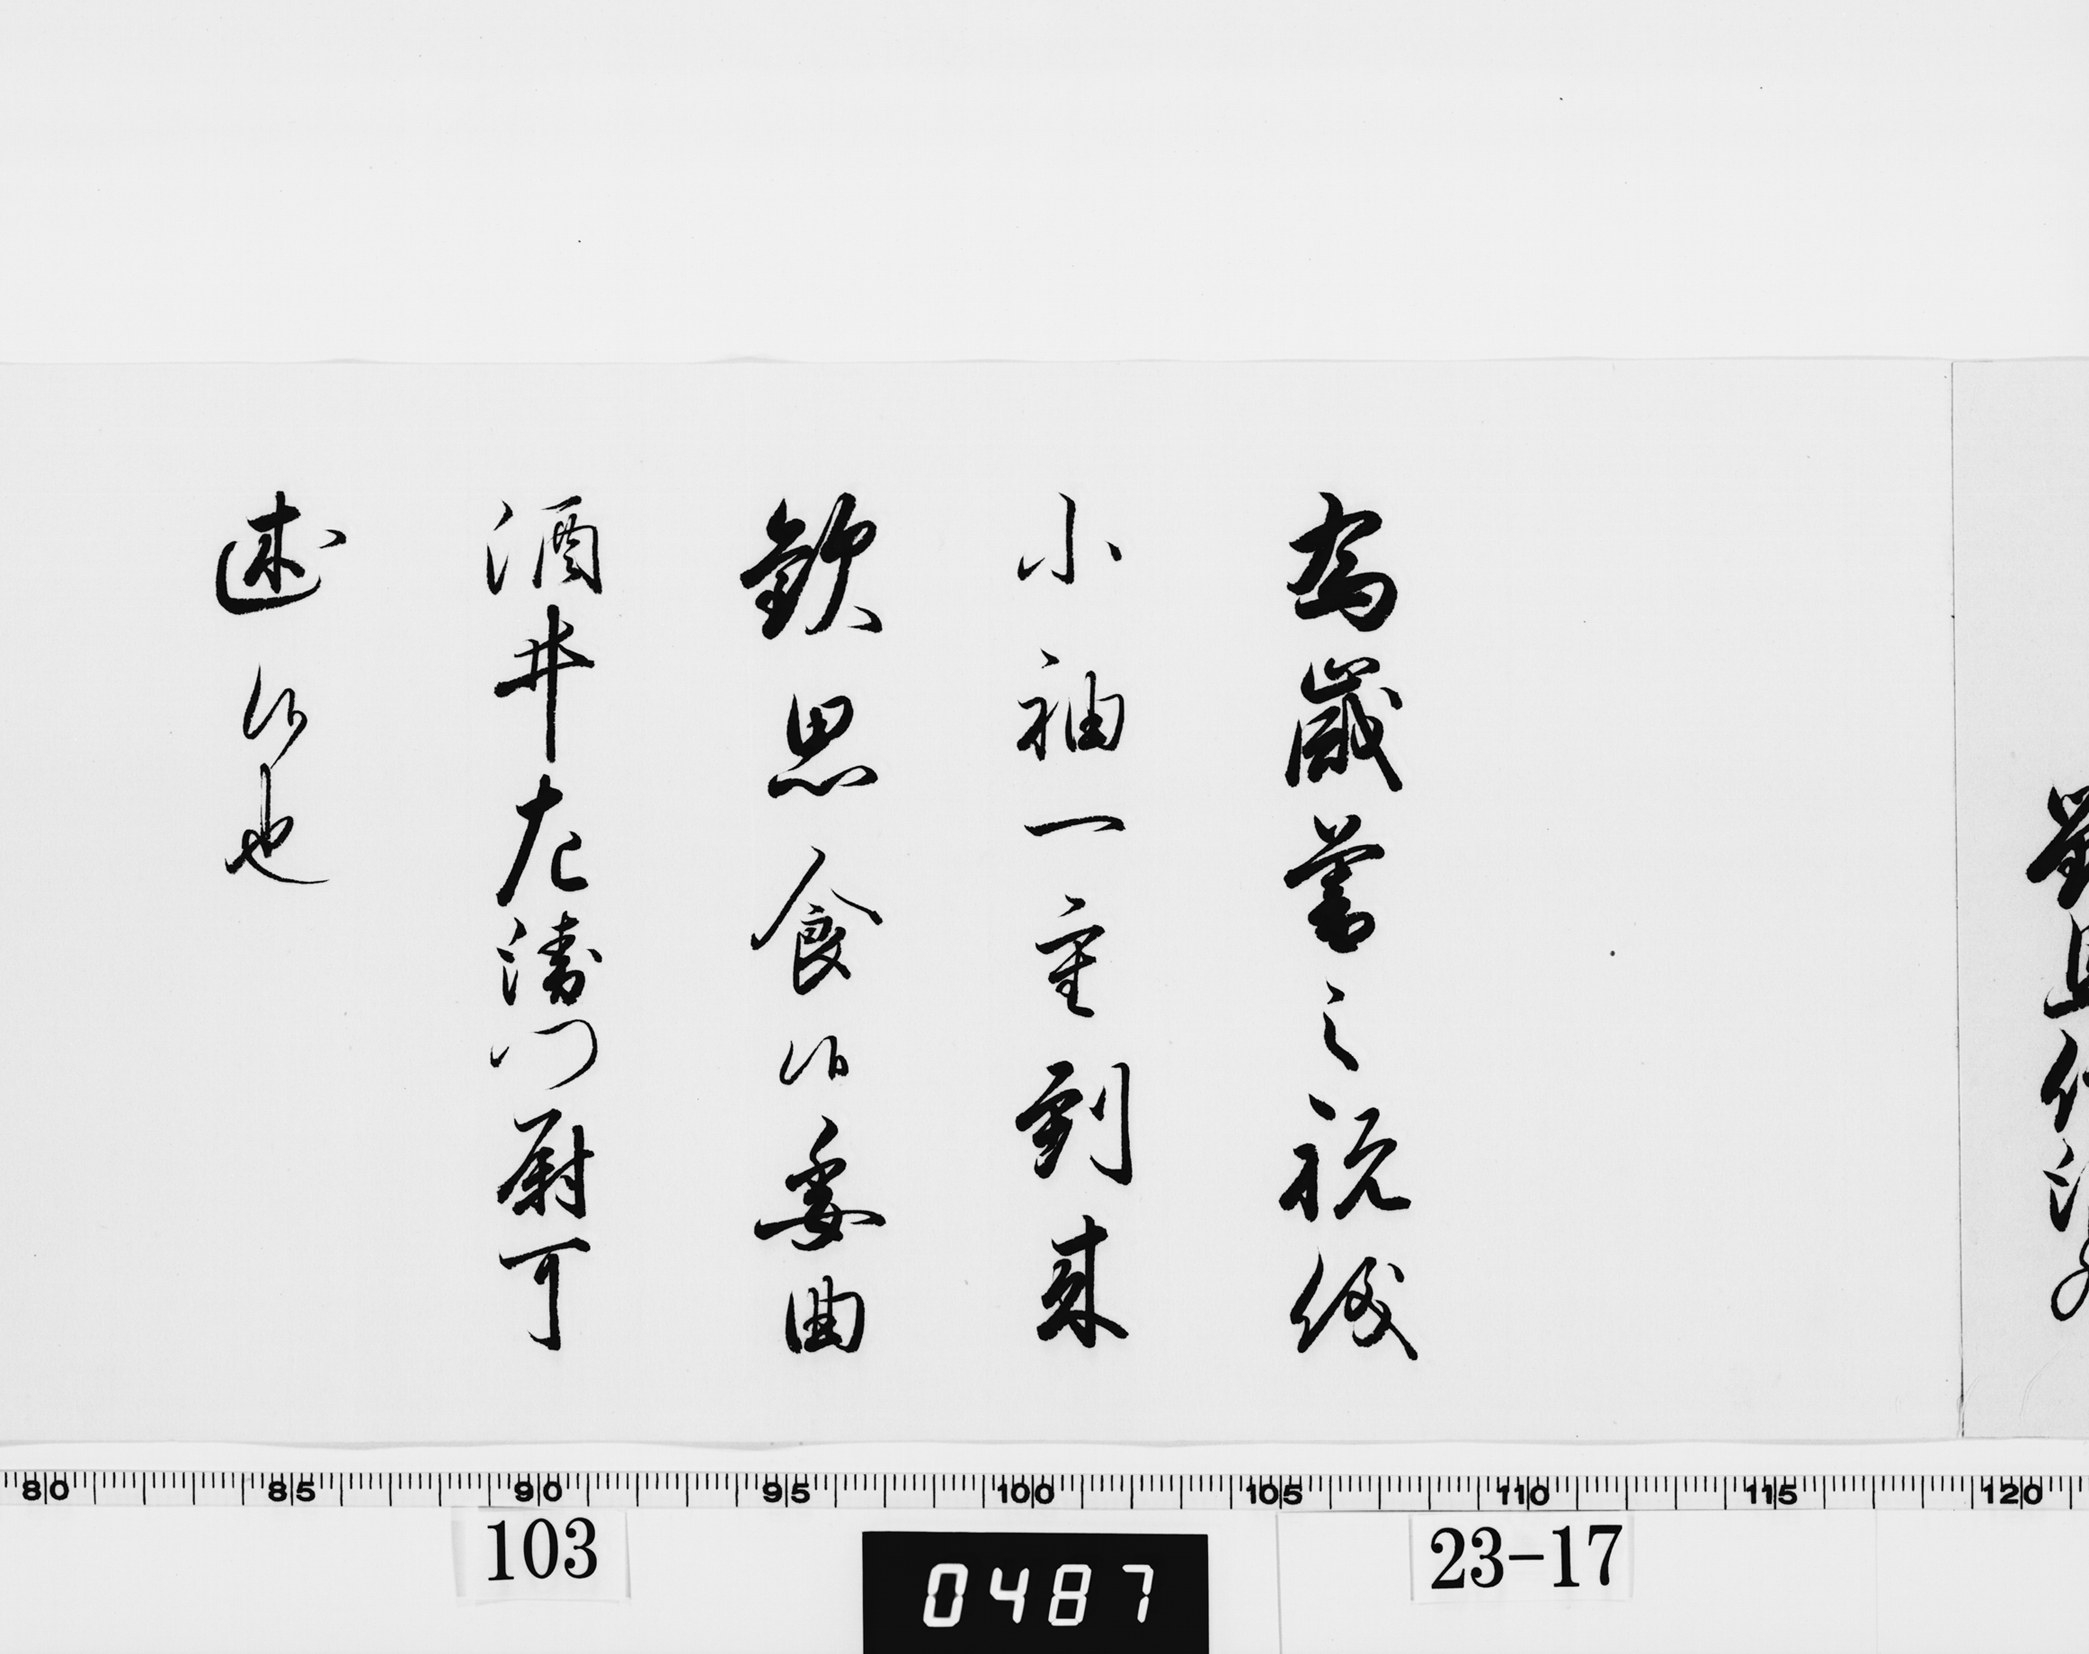 為歳暮之祝儀
小袖一重到来
欽思食候委曲
酒井左衛門尉可
述候也
80 85 90 95 100 105 110 115 120
103
0487
23-17